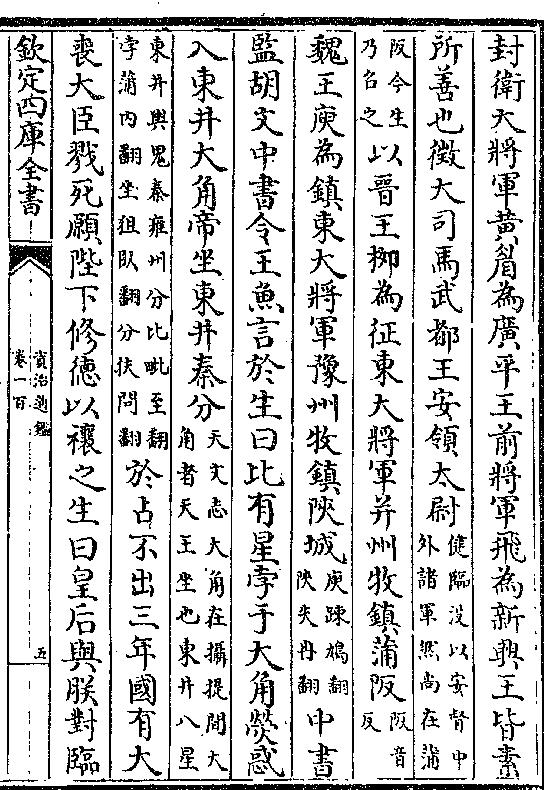 封衛大將軍黄眉為廣平王前將軍飛為新興王皆素
所善也徴大司馬武都王安領太尉健臨没以安督中外諸軍然尚在蒲
阪今生乃召之以晉王栁為征東大將軍并州牧鎮蒲阪阪音反
魏王庾為鎮東大將軍豫州牧鎮陜城庾踈鳩翻陜失冉翻中書
監胡文中書令王魚言於生曰比有星孛于大角熒惑
入東井大角帝坐東井秦分天文志大角在攝提間大角者天王坐也東井八星
東井輿鬼秦雍州分比毗至翻孛蒲内翻坐徂臥翻分扶問翻於占不出三年國有大
喪大臣戮死願陛下修徳以禳之生曰皇后與朕對臨
欽定四庫全書
資治通鑑
卷一百
五